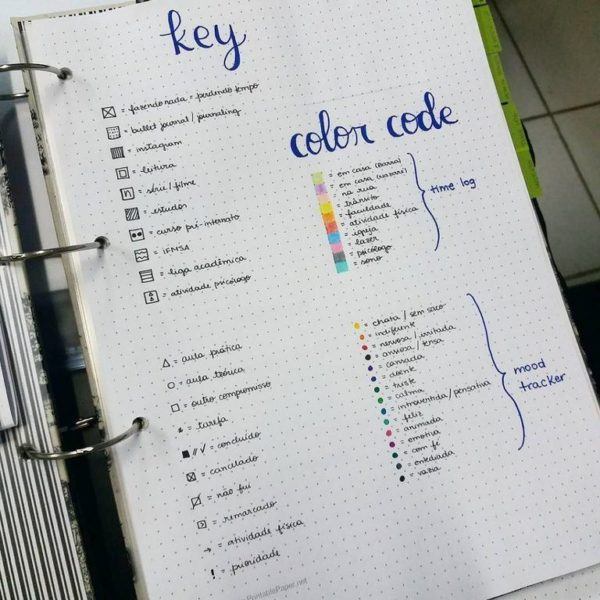 key
= fazendo nada = perdendo tempo
= bullet journal / journaling
= instagram
= leitura
= série / filme
= estudos
= curso pré-internato
= IFMSA
= liga acadêmica
= atividade psicólogo
= aula prática
= aula teórica
= outro compromisso
= tarefa
= concluído
= cancelado
= não fui
= remarcado
→ = atividade física
! = prioridade
PrintablePaper.net
color code
= em casa (Barra)
= em casa
= na rua
= trânsito
= faculdade
= atividade física
= igreja
= lazer
= psicólogo
= sono
time log
= chata / sem saco
= indiferente
= nervosa / irritada
= ansiosa / tensa
= cansada
= doente
= triste
= calma
= introvertida / pensativa
= feliz
= animada
= emotiva
= com fé
= entediada
= vazia
mood
tracker